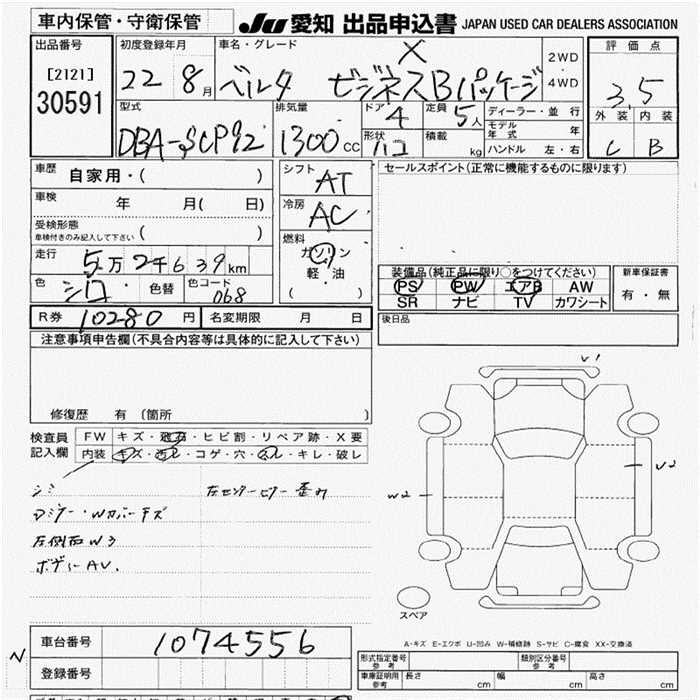 車内保管・守衛保管
JU 愛知 出品申込書 JAPAN USED CAR DEALERS ASSOCIATION
出品番号
[2121]
30591
初度登録年月
22 8月
車名・グレード
X
ベルタ ビジネスBパッケージ
2WD
4WD
評価点
3.5
外装 内装
C B
型式
DBA-SCP92
排気量
1300cc
ドア 4
形状 ハコ
定員 5人
積載 kg
ディーラー・並行
モデル年式 年
ハンドル 左・右
車歴 自家用・( )
車検 年 月( 日)
受検形態
車検付きのみ記入して下さい ( )
走行 5万2千639km
色 シロ ・ 色替 色コード 068
シフト AT
冷房 AC
燃料
ガソリン
軽・油
( )
セールスポイント(正常に機能するものに限ります)
装備品(純正品に限り○をつけてください)
PS PW エアB AW
SR ナビ TV カワシート
新車保証書
有・無
R券 10280円 名変期限 月 日
後日品
注意事項申告欄(不具合内容等は具体的に記入して下さい)
修復歴 有(箇所 )
検査員記入欄
FW キズ・飛石・ヒビ割・リペア跡・X要
内装 キズ・汚レ・コゲ・穴・スレ・キレ・破レ
シミ
左センターピラー歪み
左側面W3
ボディーAV.
V1
W2
U2
スペア
A-キズ E-エクボ U-凹み W-補修跡 S-サビ C-腐食 XX-交換済
N
車台番号 1074556
登録番号
形式指定番号 参考
類別区分番号 参考
車庫証明用 参考 長さ cm 幅 cm 高さ cm